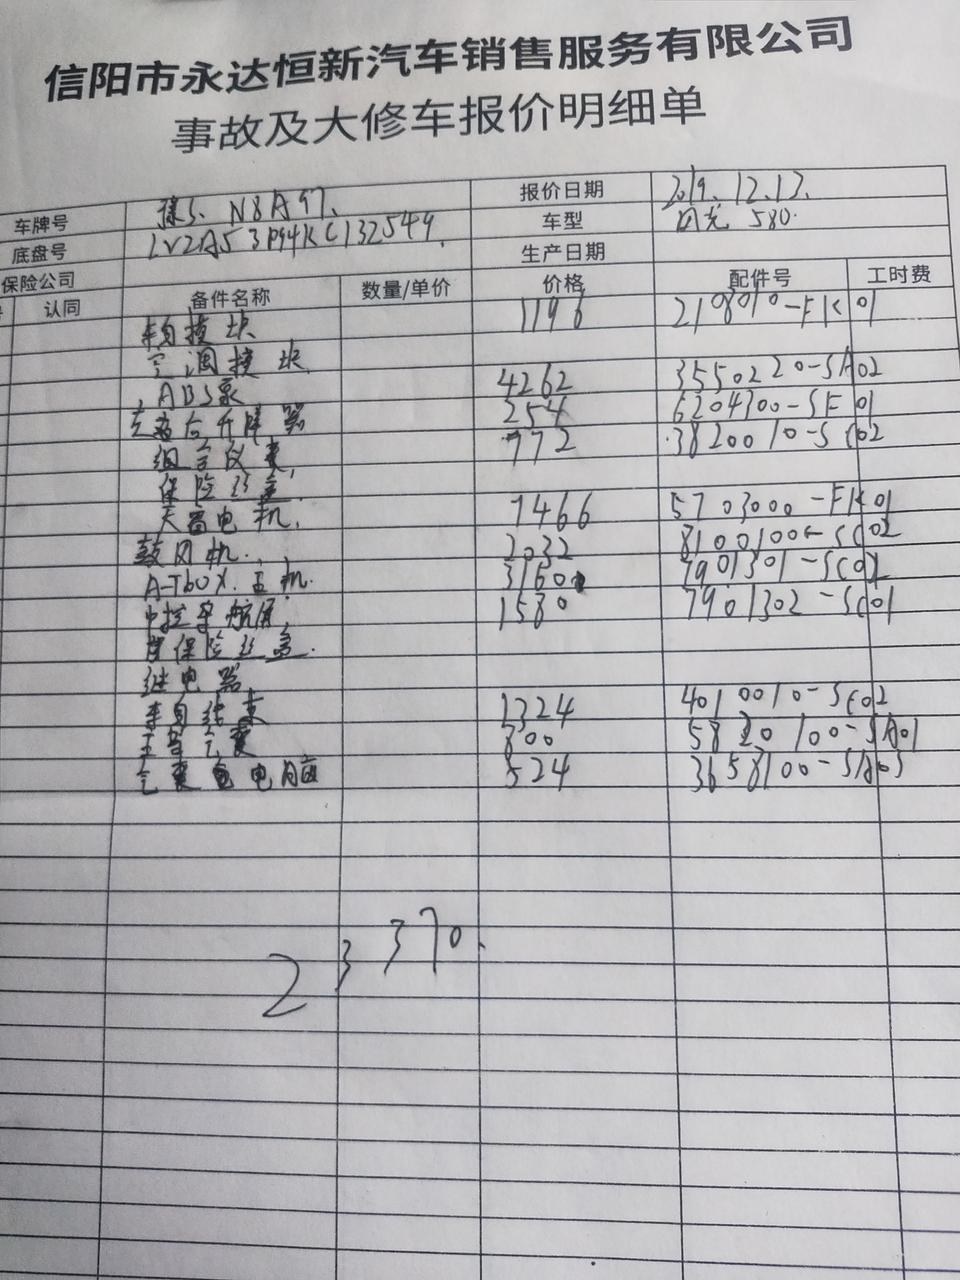 信阳市永达恒新汽车销售服务有限公司
事故及大修车报价明细单
车牌号 豫S. N8A97. 报价日期 2019. 12.12.
底盘号 LVZA53P94KC132549. 车型 风光 580.
保险公司 生产日期
认同 备件名称 数量/单价 价格 配件号 工时费
车身模块 1198 2108010-FK01
空调模块
ABS泵 4262 3550220-SA02
左前升降器 254 6204300-SF01
组合仪表 772 3820010-SC02
保险丝盒
天窗电机. 7466 5703000-FK01
鼓风机. 2032 8100100-SC02
A-Tbox.主机. 3160 7901301-SC02
中控导航屏 1580 7901302-SC01
保险丝盒.
继电器
车身线束 1324 4010010-SC02
主驾气囊 800 5820100-SA01
气囊电脑 524 3658100-SA03
23370.